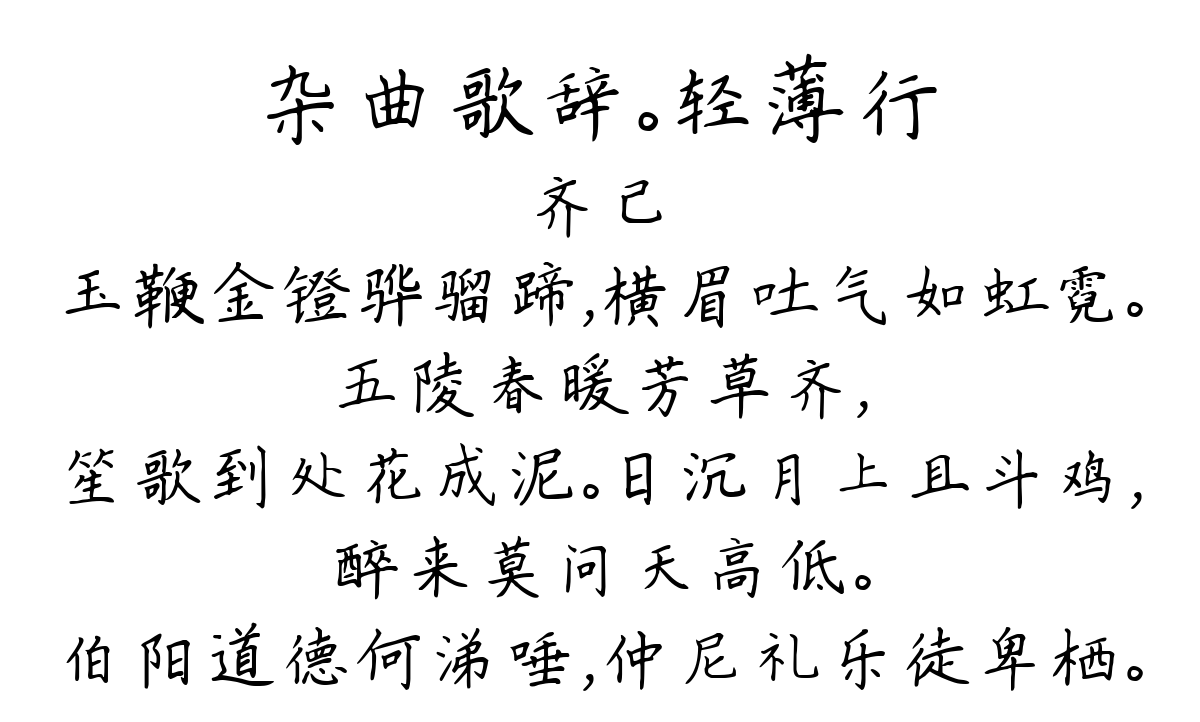 杂曲歌辞。轻薄行
齐己
玉鞭金镫骅骝蹄,横眉吐气如虹霓。
五陵春暖芳草齐,
笙歌到处花成泥。日沉月上且斗鸡,
醉来莫问天高低。
伯阳道德何涕唾,仲尼礼乐徒卑栖。